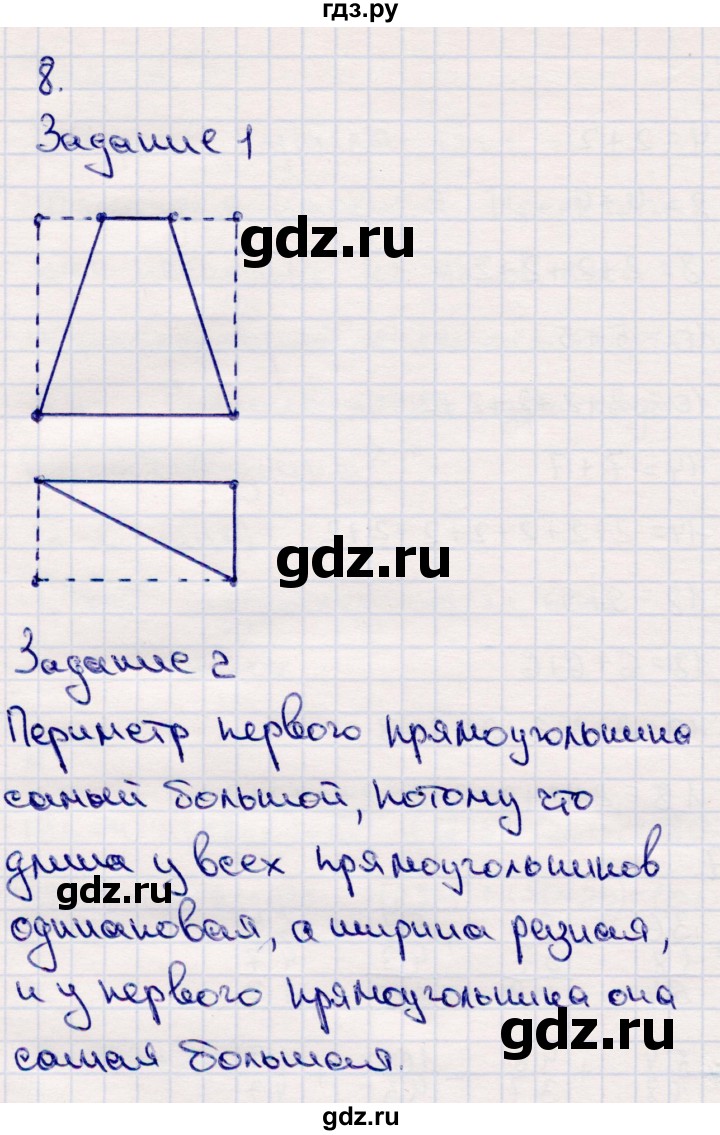 гдз.ру
8.
Задание 1
gdz.ru
gdz.ru
Задание 2
Периметр первого прямоугольника
самый большой, потому что
длина у всех прямоугольников
gdz.ru
одинаковая, а ширина разная,
и у первого прямоугольника она
gdz.ru
самая большая.
gdz.ru